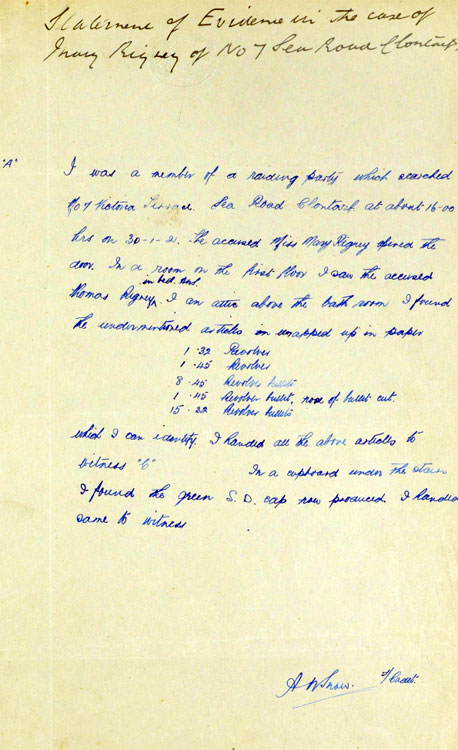 Statement of Evidence in the case of
Mary Rigney of No 7 Sea Road Clontarf.
"A"
I was a member of a raiding party which searched
No 7 Victoria Terrace. Sea Road Clontarf at about 16-00
hrs on 30-1-21. The accused Miss Mary Rigney opened the
door. In a room on the first floor I saw the accused
in bed. and
Thomas Rigney. I an attic above the bath room I found
the undermentioned articles in wrapped up in paper
1 .32 Revolver
1 .45 Revolver
8 .45 Revolver bullets
1 .45 Revolver bullet, nose of bullet cut.
15 .32 Revolver bullets
which I can identify. I handed all the above articles to
witness "C" In a cupboard under the stairs
I found the green S.D. cap now produced. I handed
same to witness
A W Snow. T/Cadet.